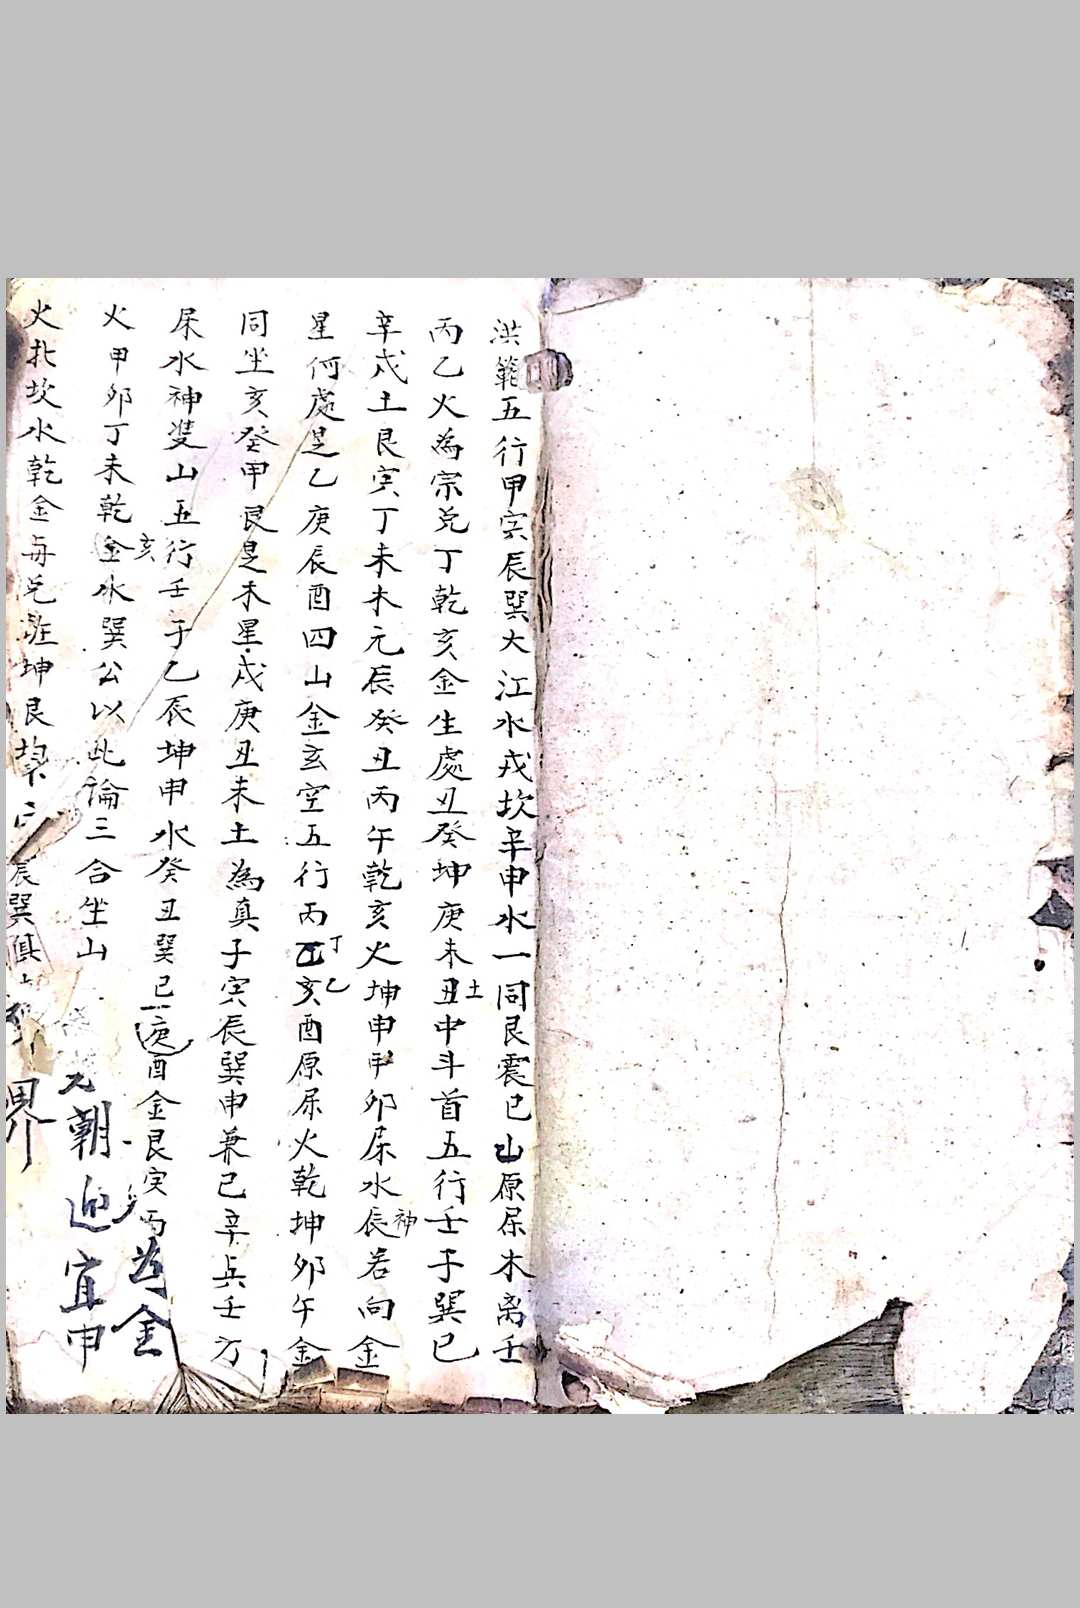 洪範五行甲寅辰巽大江水戎坎辛申水一同艮震巳山原屎木离壬
丙乙火為宗兑丁乾亥金生處丑癸坤庚未丑土中斗首五行壬子巽巳
辛戌土艮寅丁未木元辰癸丑丙午乾亥火坤申甲卯屎水辰神若向金
星何處是乙庚辰酉四山金玄空五行丙丁乙亥酉原屎火乾坤卯午金
同坐亥癸甲艮是木星戌庚丑未土為真子寅辰巽申兼巳辛兵壬方
屎水神䨇山五行壬子乙辰坤申水癸丑巽巳庚酉金艮寅丙
火甲卯丁未乾亥金水巽公以此論三合坐山
火北坎水乾金每兑 坤艮 辰巽俱
为金
朝迎宜申
界